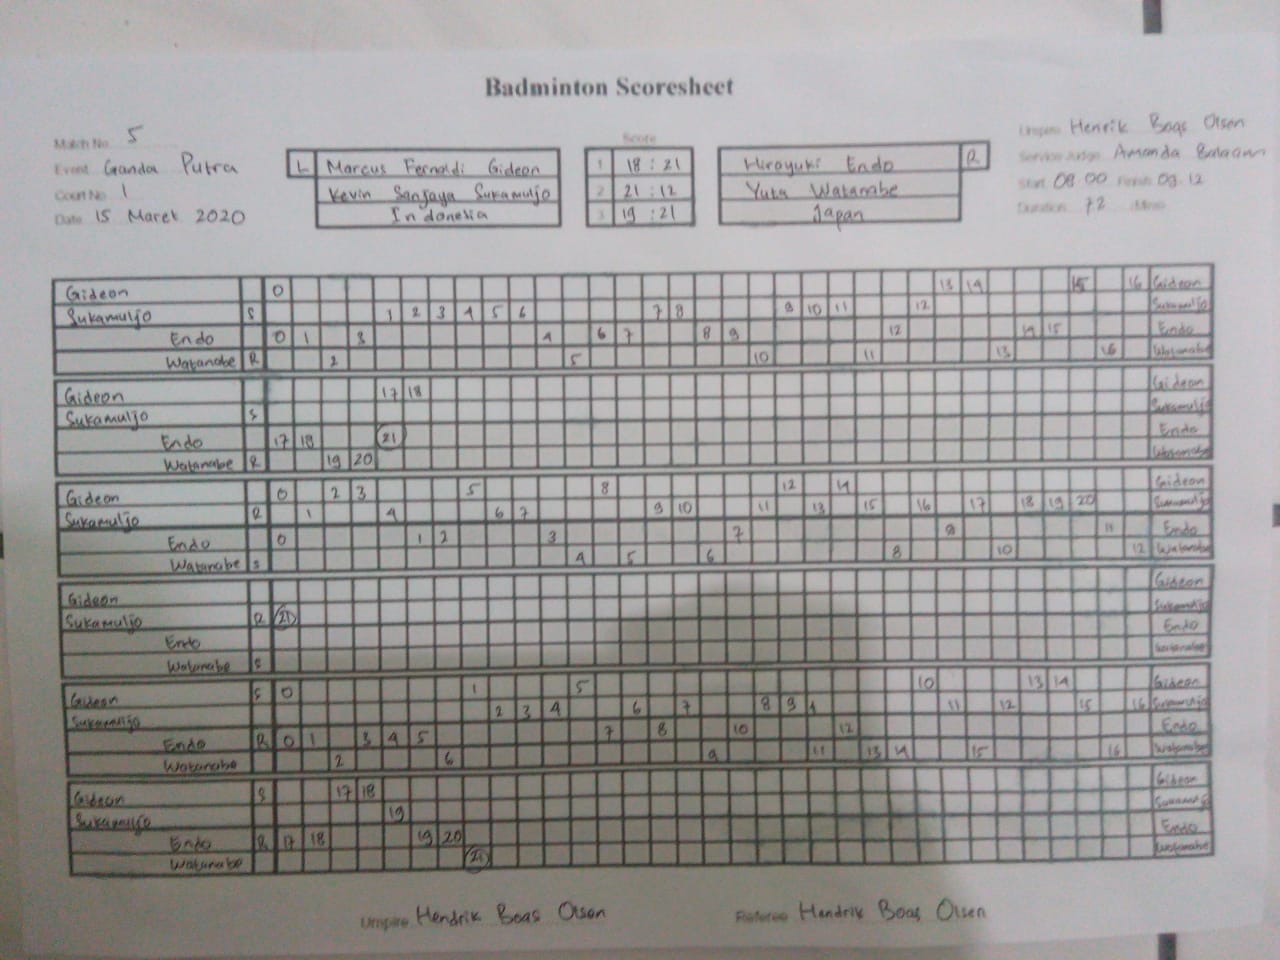 Badminton Scoresheet
Match No 5
Event Ganda Putra
Court No 1
Date 15 Maret 2020
L Marcus Fernaldi Gideon
Kevin Sanjaya Sukamuljo
Indonesia
Score
1 18 : 21
2 21 : 12
3 19 : 21
Hirayuki Endo R
Yuta Watanabe
Japan
Umpire Henrik Boas Olsen
Service Judge Amanda
Start 08.00 Finish 09.12
Duration 72 Mins
Gideon 0 13 14 15 16 Gideon
Sukamuljo S 1 2 3 4 5 6 7 8 9 10 11 12 Sukamuljo
Endo 0 1 3 4 6 7 8 9 12 14 15 Endo
Watanabe R 2 5 10 11 13 16 Watanabe
Gideon 17 18 Gideon
Sukamuljo S Sukamuljo
Endo 17 18 21 Endo
Watanabe R 19 20 Watanabe
Gideon 0 2 3 5 8 12 14 Gideon
Sukamuljo R 1 4 6 7 9 10 11 13 15 16 17 18 19 20 Sukamuljo
Endo 0 1 2 3 7 9 11 Endo
Watanabe S 4 5 6 8 10 12 Watanabe
Gideon Gideon
Sukamuljo R 21 Sukamuljo
Endo Endo
Watanabe S Watanabe
Gideon S 0 1 5 10 13 14 Gideon
Sukamuljo 2 3 4 6 7 8 9 11 12 15 16 Sukamuljo
Endo R 0 1 3 4 5 7 8 10 12 Endo
Watanabe 2 6 9 11 13 14 15 16 Watanabe
Gideon S 17 18 Gideon
Sukamuljo 19 Sukamuljo
Endo R 17 18 19 20 Endo
Watanabe 21 Watanabe
Umpire Hendrik Boas Olsen
Referee Hendrik Boas Olsen